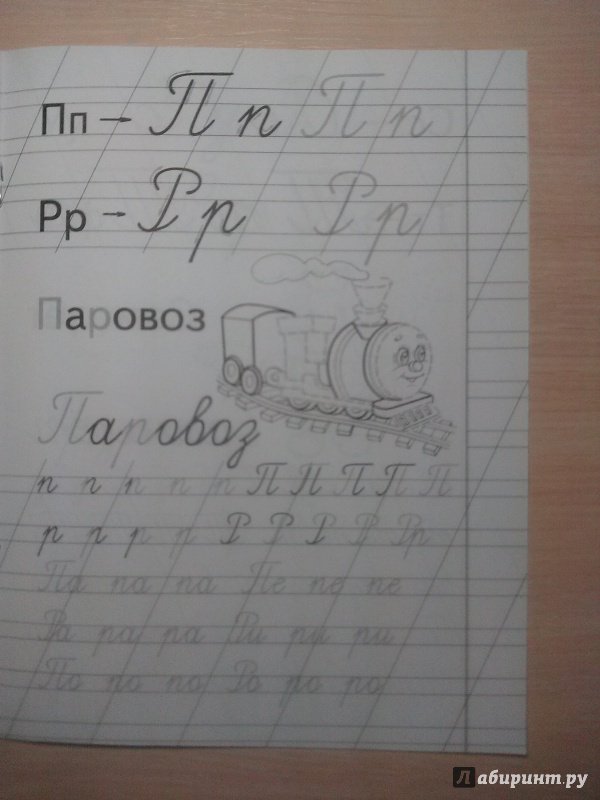 Пп → П п П п
Рр → Р р Р р
Паровоз
Паровоз
п п п п п П П П П П
р р р р Р Р Р Р Рр
Па па па Пе пе пе
Ра ра ра Ри ри ри
По по по Ро ро ро
Лабиринт.ру